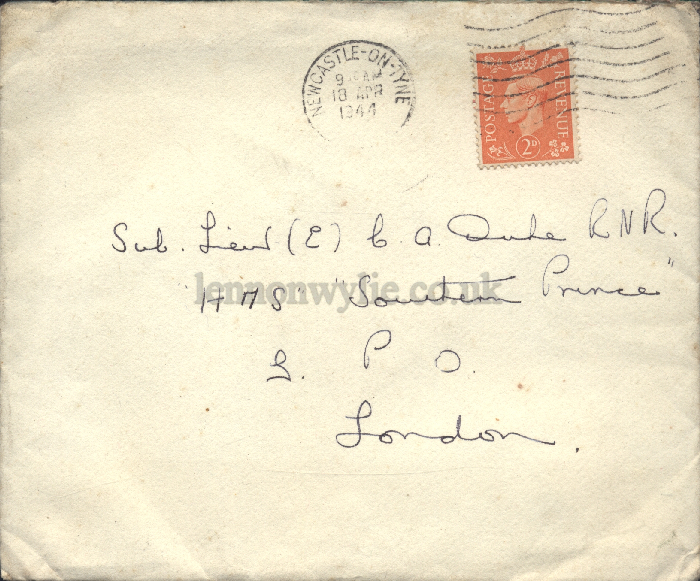 NEWCASTLE-ON-TYNE
9 AM
18 APR
1944
POSTAGE REVENUE
2D
Sub. Lieut (E) C. A. Duke R.N.R.
lennonwylie.co.uk
"HMS" "Southern Prince"
G. P. O.
London.